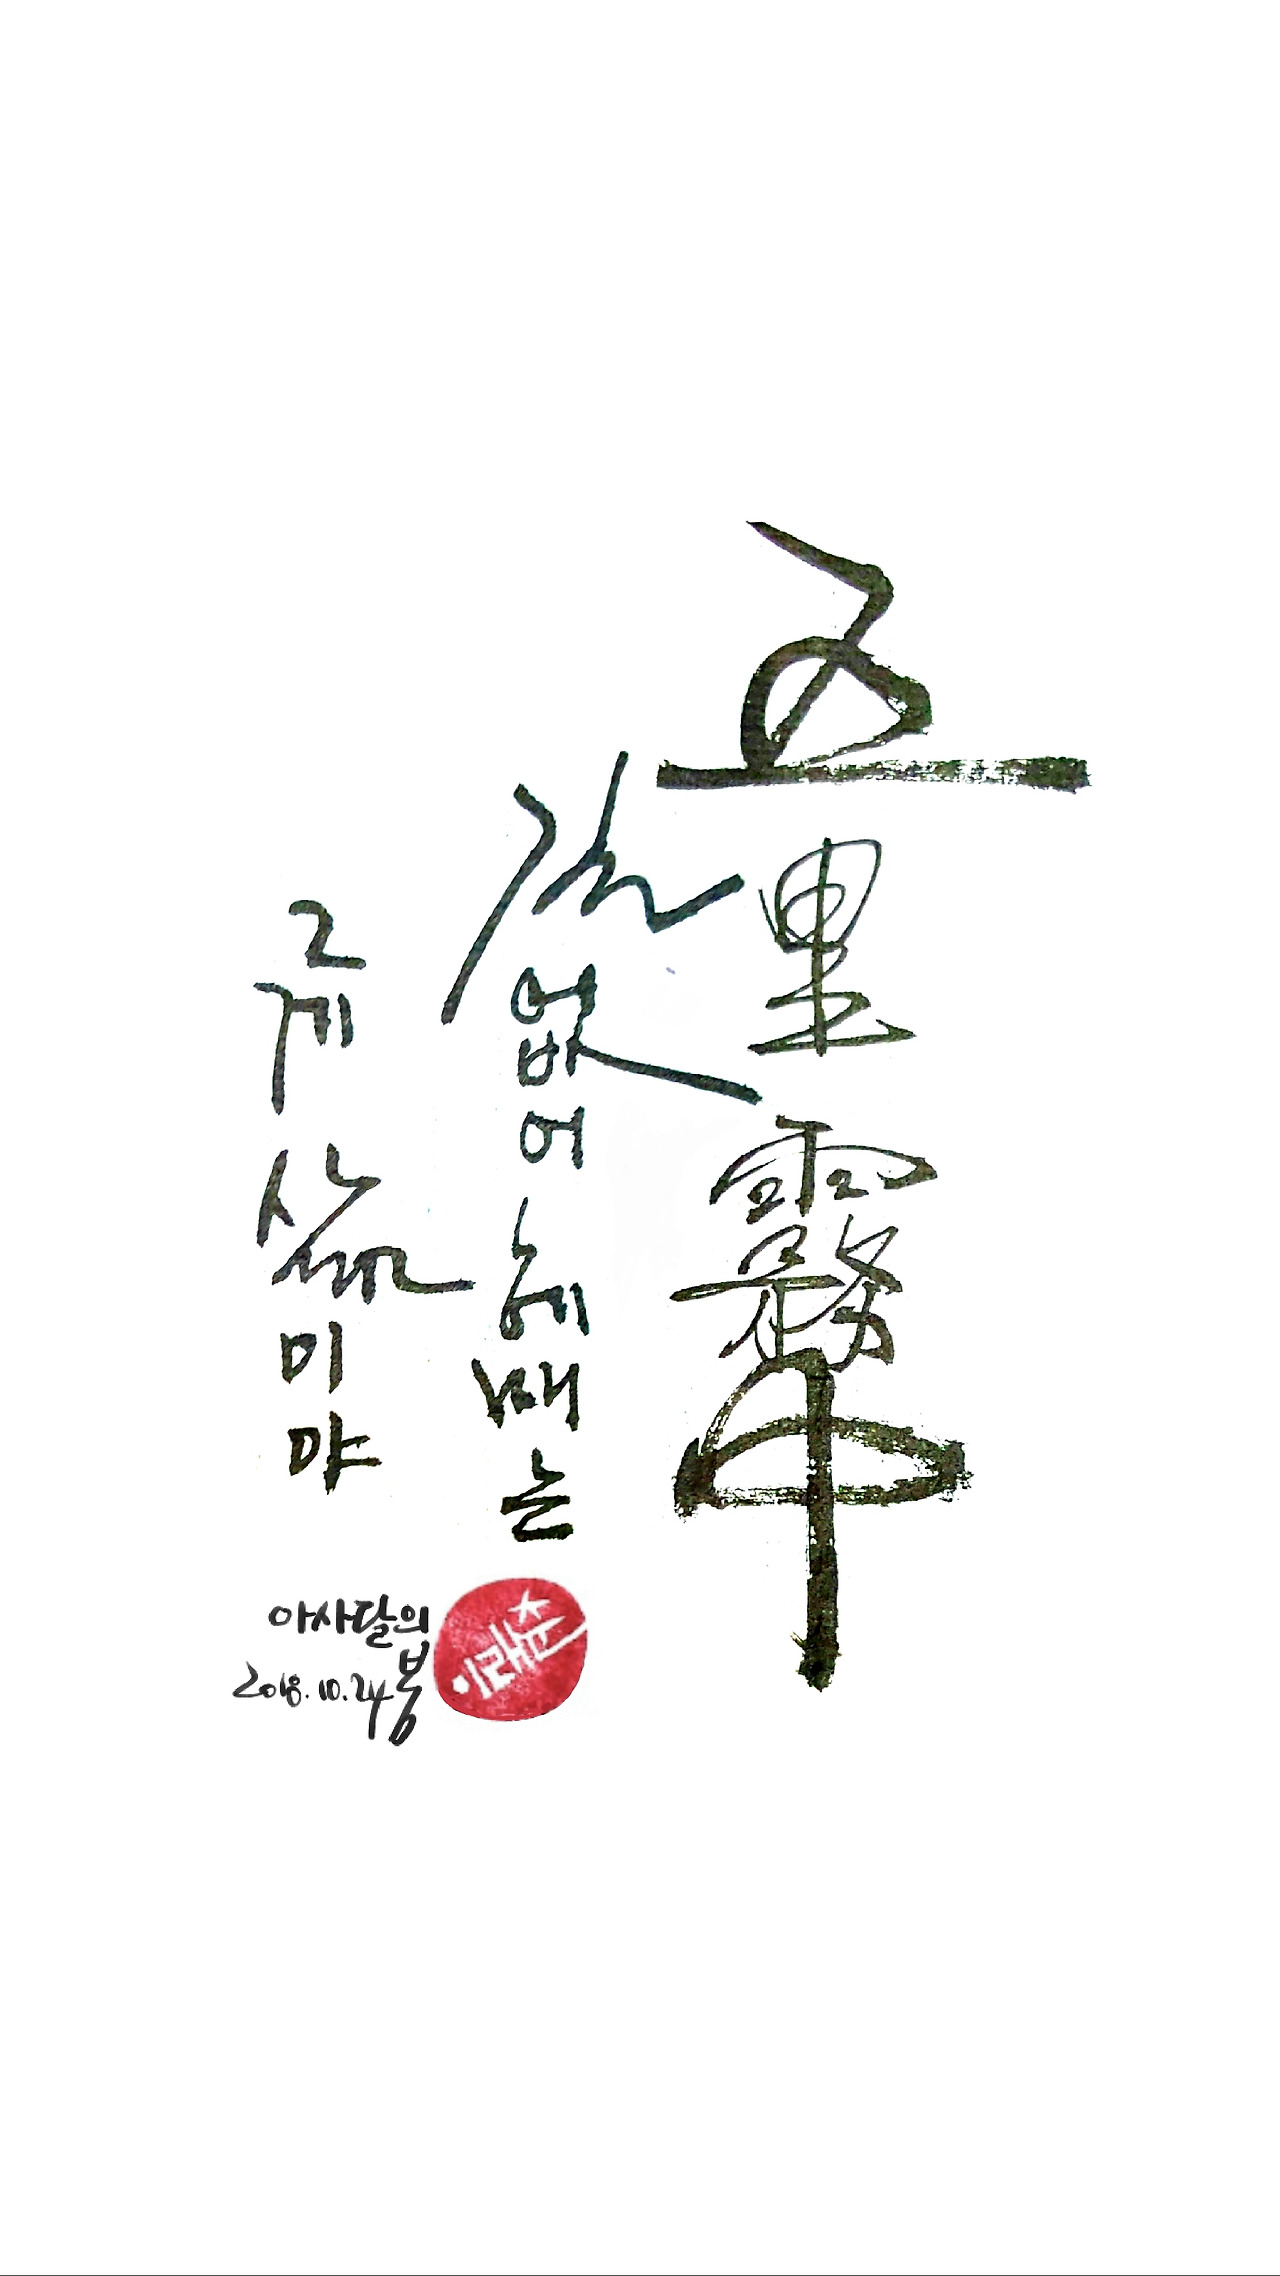 五里霧中
길 없어 헤매는
그게 삶이야
아사달의 봄
2018.10.24
이래춘